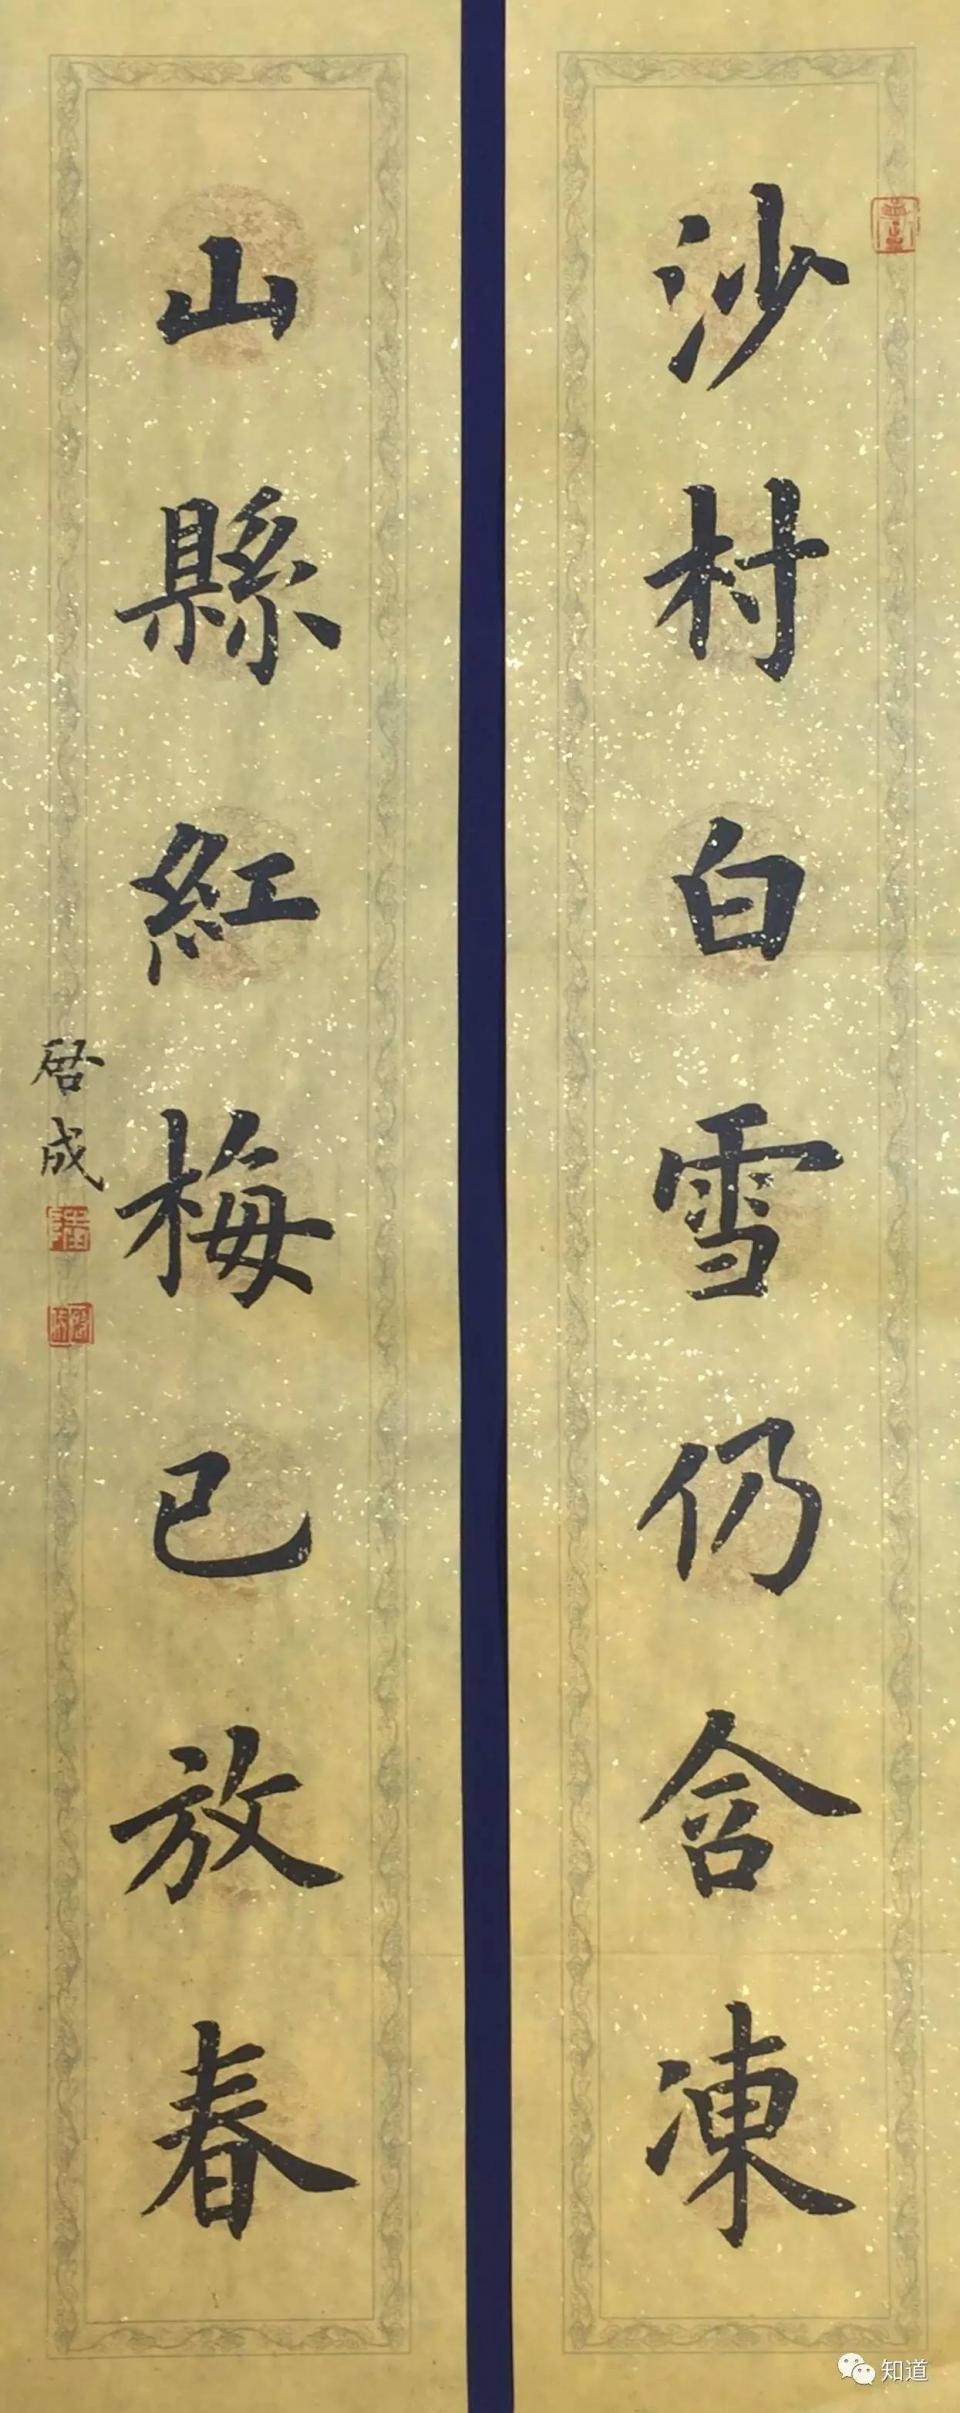 沙村白雪仍含凍
山縣紅梅已放春
啓成
知道